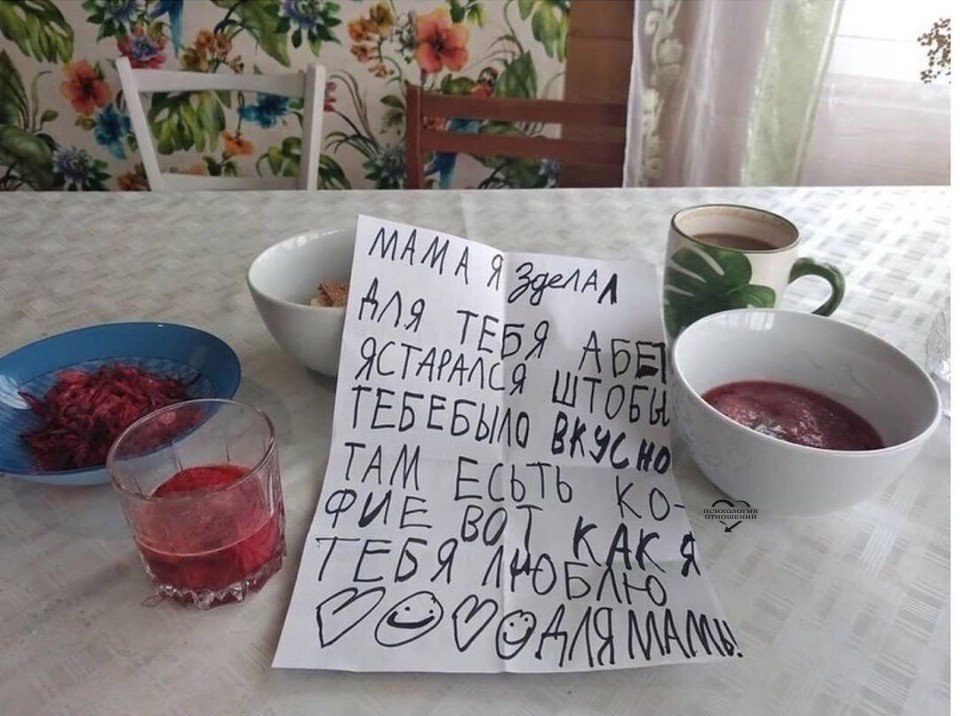 МАМА Я ЗДЕЛАЛ
ДЛЯ ТЕБЯ АБЕТ
ЯСТАРАЛСЯ ШТОБЫ
ТЕБЕБЫЛО ВКУСНО
ТАМ ЕСЬТЬ КО-
ФИЕ ВОТ КАК Я
ТЕБЯ ЛЮБЛЮ
ДЛЯ МАМЫ!
ПСИХОЛОГИЯ
ОТНОШЕНИЙ